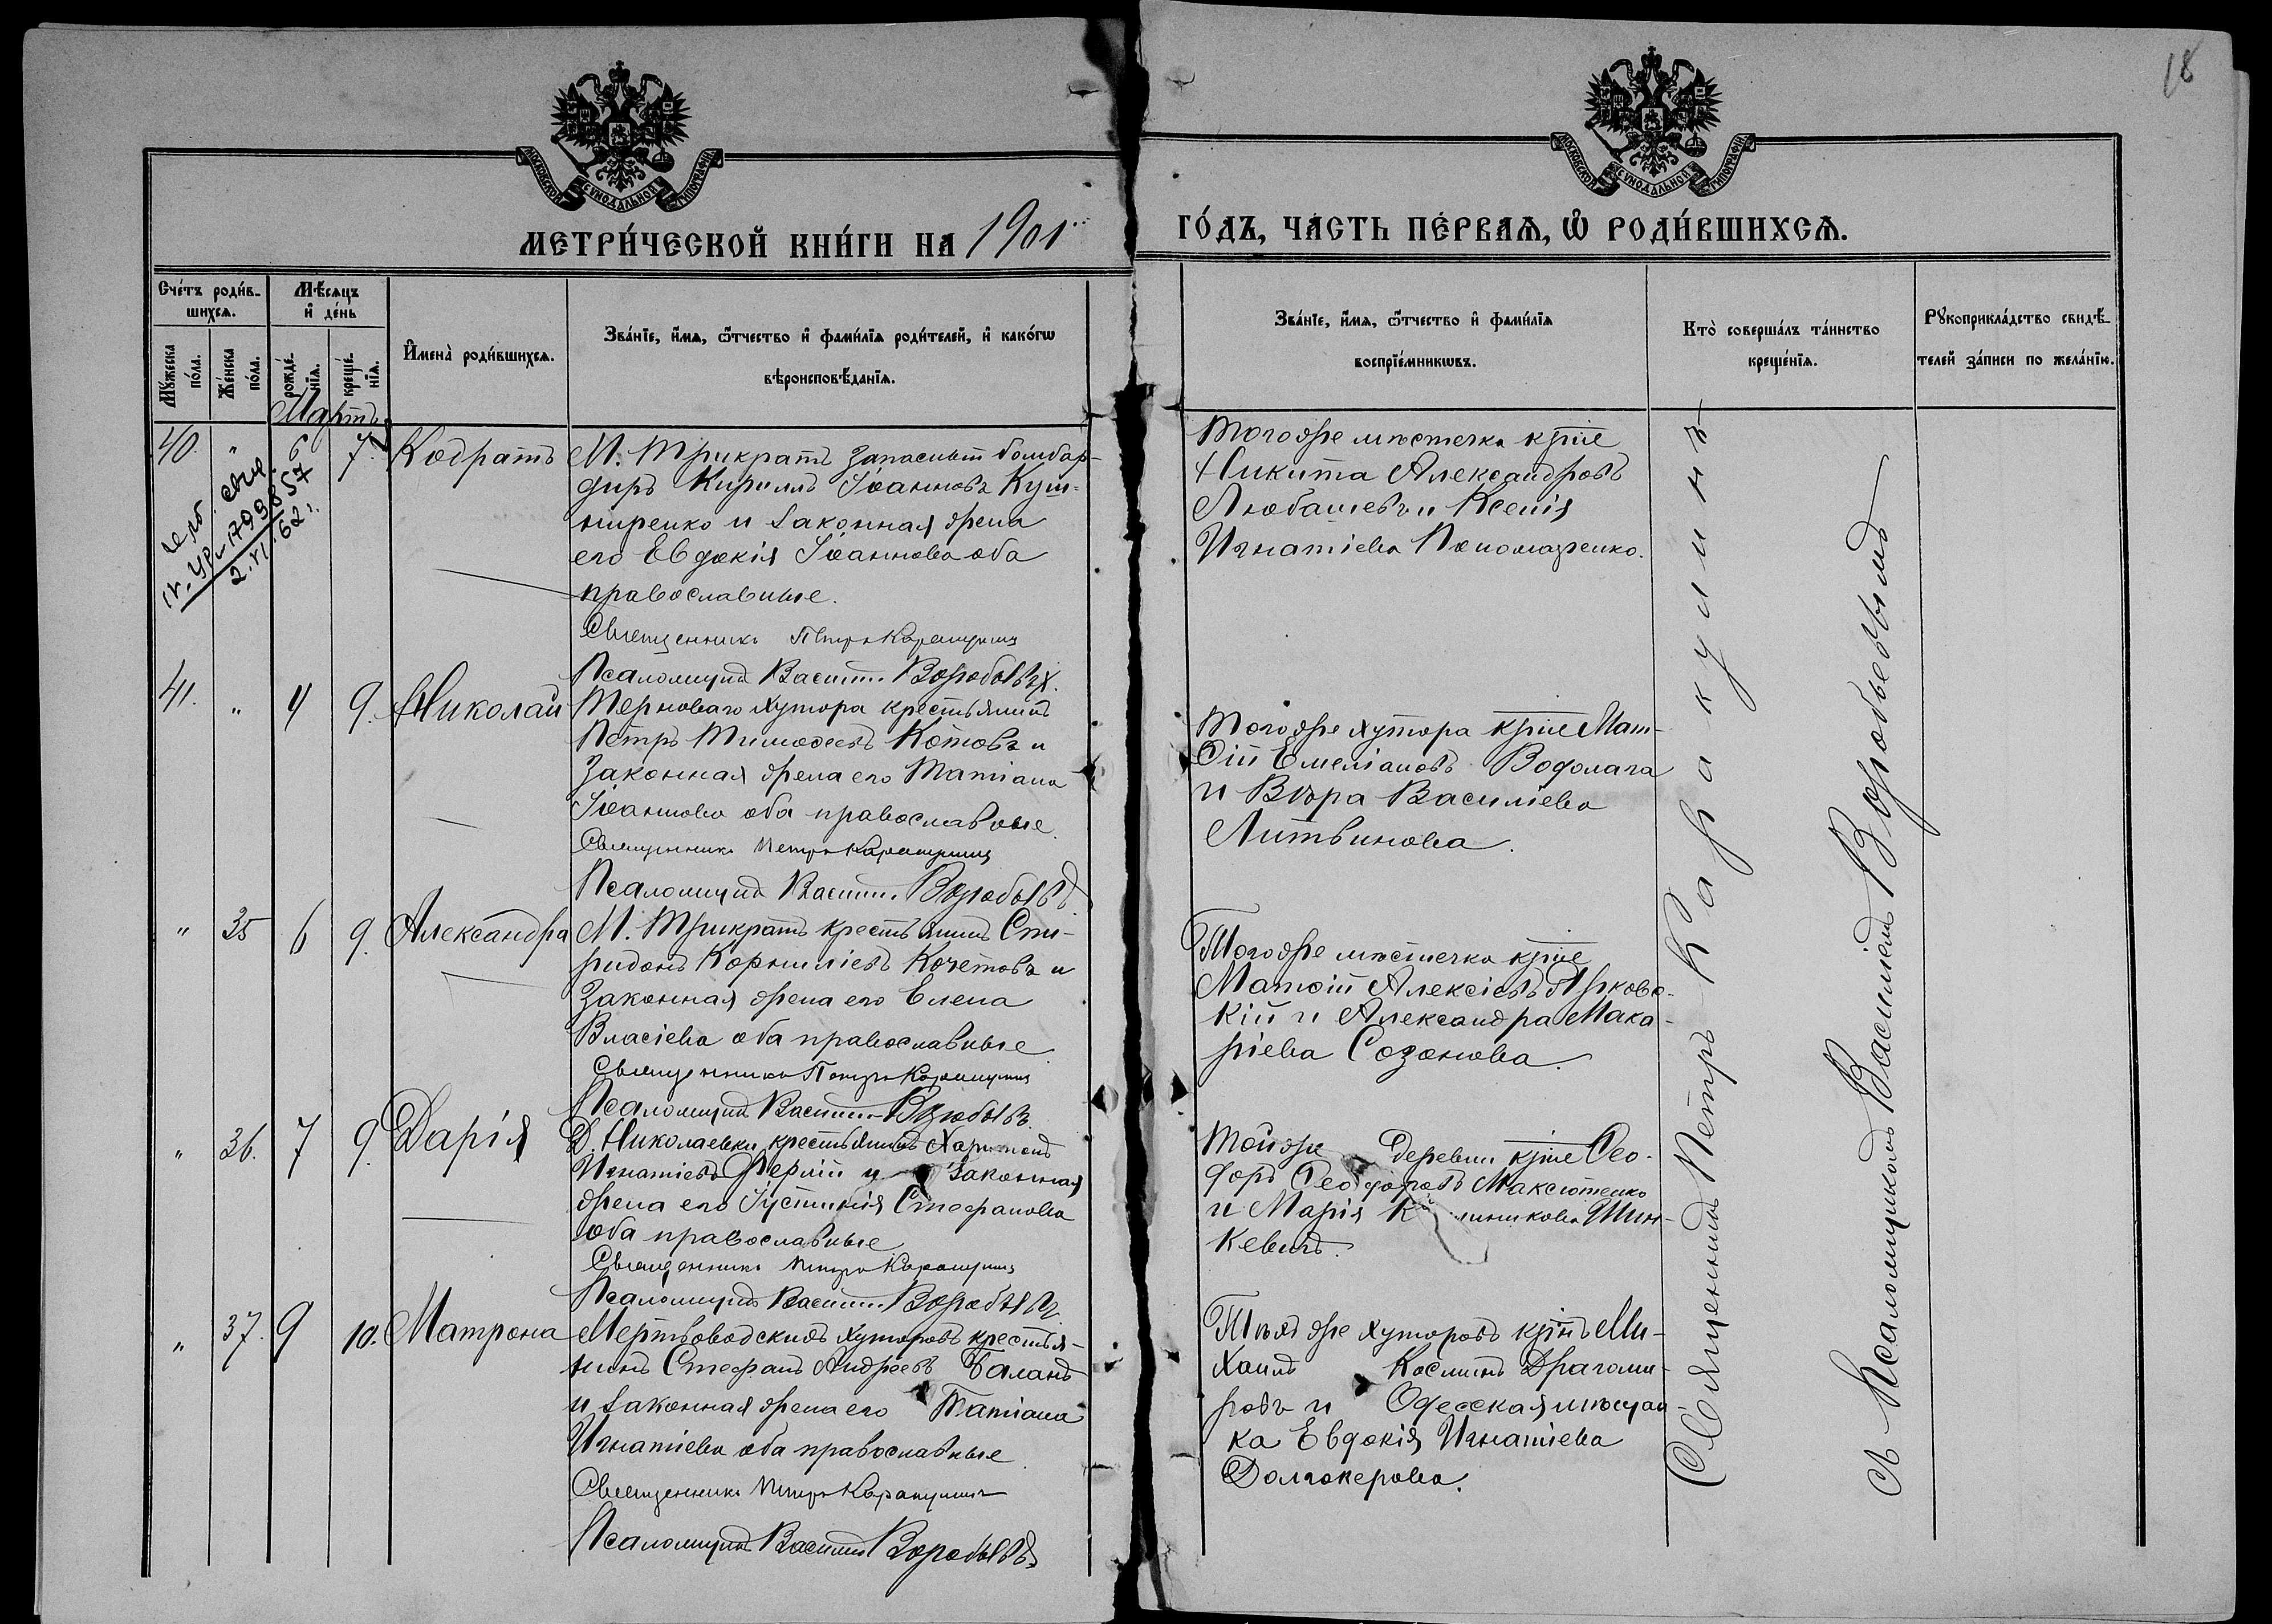 18
МОСКОВСКОЙ СѴНОДАЛЬНОЙ ТИПОГРАФІИ
МОСКОВСКОЙ СѴНОДАЛЬНОЙ ТИПОГРАФІИ
МЕТРИ́ЧЕСКОЙ КНИ́ГИ НА 1901
ГО́ДЪ, ЧА́СТЬ ПЕ́РВАѦ, Ѡ҆ РОДИ́ВШИХСѦ.
Сче́тъ роди́в-
шихсѧ.
Мꙋ́жеска по́ла.
Же́нска по́ла.
Мѣ́сѧцъ
и҆ де́нь
рожде́-
нїѧ.
креще́-
нїѧ.
И҆мена̀ роди́вшихсѧ.
Зва́нїе, и҆́мѧ, ѻ҆́тчество и҆ фами́лїѧ роди́телей, и҆ како́гѡ
вѣроисповѣ́данїѧ.
Зва́нїе, и҆́мѧ, ѻ҆́тчество и҆ фами́лїѧ
воспрїе́мникѡвъ.
Кто̀ соверша́лъ та́инство
креще́нїѧ.
Рꙋкоприкла́дство свидѣ́-
телей за́писи по жела́нїю.
Мартъ
40. " 6 7. Кодратъ
М. Трикратъ запасный бомбар-
диръ Кириллъ Іоанновъ Куш-
ниренко и законная жена
его Евдокія Іоаннова оба
православные.
Священникъ Петръ Каракулинъ
Псаломщикъ Василій Воробьевъ.
Тогоже мѣстечка крне
Никита Александровъ
Любашевъ и Ксенія
Игнатіева Пономаренко.
179957
2.VI.62г.
41. " 4 9. Николай
Терноваго хутора крестьянинъ
Петръ Тимоѳеевъ Котовъ и
законная жена его Татіана
Іоаннова оба православные.
Священникъ Петръ Каракулинъ
Псаломщикъ Василій Воробьевъ.
Тогоже хутора крне Мат-
ѳій Емеліановъ Водолага
и Вѣра Василіева
Литвинова.
" 35 6 9. Александра
М. Трикратъ крестьянинъ Спи-
ридонъ Корниліевъ Кочетовъ и
законная жена его Елена
Власіева оба православные.
Священникъ Петръ Каракулинъ
Псаломщикъ Василій Воробьевъ.
Тогоже мѣстечка крне
Матѳій Алексіевъ Ярковс-
кій и Александра Мака-
ріева Созонова.
" 36. 7 9. Дарія
Д. Николаевки крестьянинъ Харитонъ
Игнатіевъ и законная
жена его Іустинія Стефанова
оба православные
Священникъ Петръ Каракулинъ
Псаломщикъ Василій Воробьевъ.
Тойже деревни крне Ѳео-
доръ Ѳеодоровъ Максютенко
и Марія Шин-
кевичъ.
" 37. 9 10. Матрона
Мертвоводскихъ хуторовъ крестья-
нинъ Стефанъ Андреевъ Баланъ
и законная жена его Татіана
Игнатіева оба православные.
Священникъ Петръ Каракулинъ
Псаломщикъ Василій Воробьевъ.
Тѣхъ же хуторовъ крнъ Ми-
хаилъ Косминъ Драгоми-
ровъ и Одесская мѣщан-
ка Евдокія Игнатіева
Долгокерова.
Священникъ Петръ Каракулинъ
съ Псаломщикомъ Василіемъ Воробьевымъ